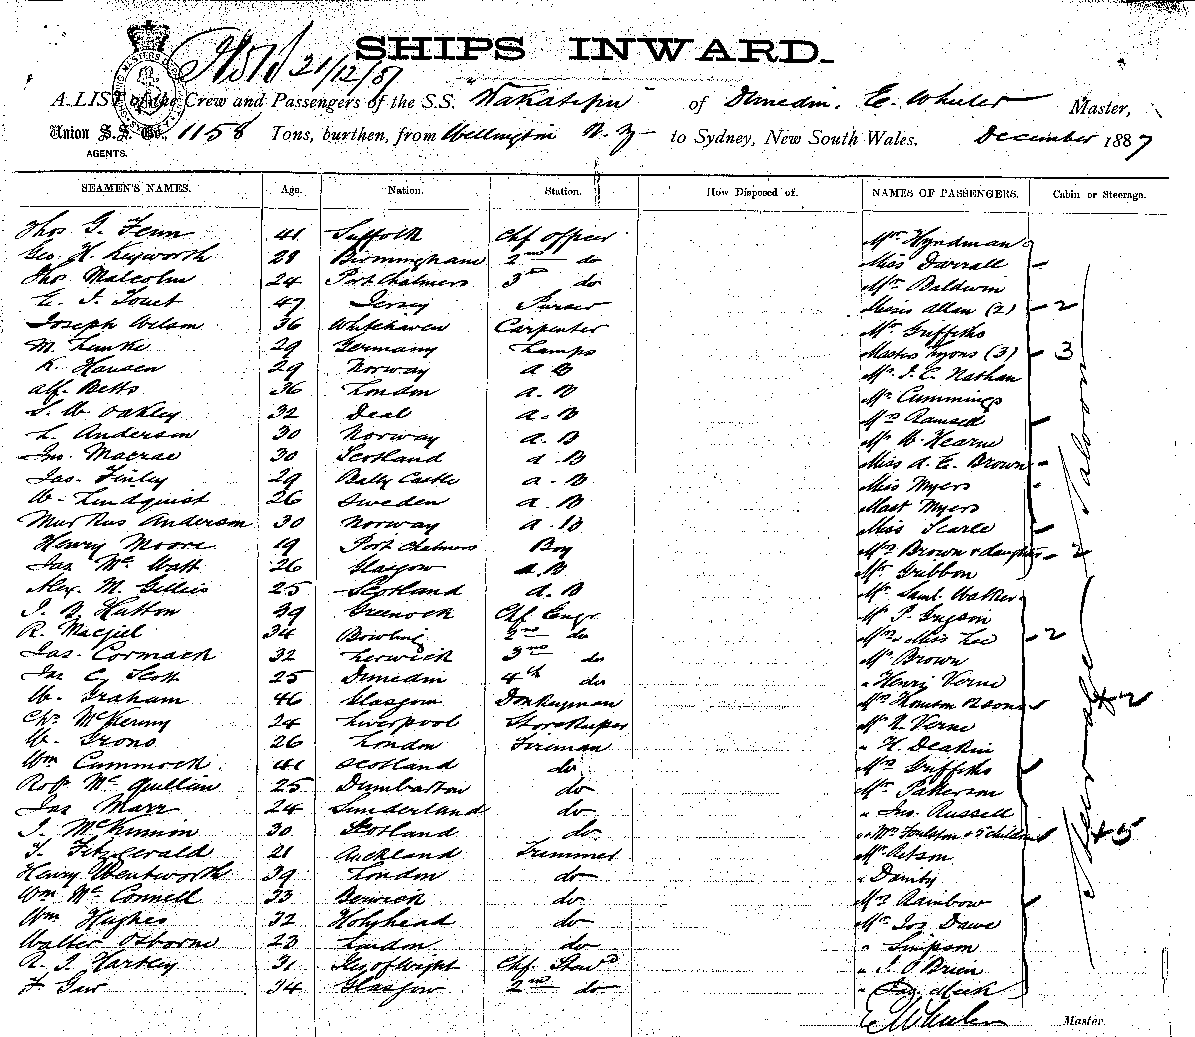 SHIPS INWARD.
21/12/87
A LIST of the Crew and Passengers of the S.S. "Wakatipu" of Dunedin, E. Wheeler Master,
Union S.S. Co., 1158 Tons, burthen, from Wellington N.Z. to Sydney, New South Wales. December 1887
AGENTS.
SEAMEN'S NAMES. Age. Nation. Station. How Disposed of. NAMES OF PASSENGERS. Cabin or Steerage.
Thos G. Fenn 41 Suffolk Chf Officer Mr Hyndman
Geo. H. Kepworth 28 Birmingham 2nd do Miss Darrall
Thos Malcolm 24 Port Chalmers 3rd do Mrs Baldwin
E. J. Touet 47 Jersey Purser Misses Allan (2) 2
Joseph Wilson 36 Whitehaven Carpenter Mr Griffiths
M. Lunke 29 Germany Lamps Masters Lyons (3) 3
K. Hansen 29 Norway A B Mr J. E. Nathan
Alf. Betts 36 London A. B Mr Cummings
S. W. Oakley 32 Deal A. B Mrs Ramsell
L. Anderson 30 Norway A. B Mr W. Hearne
Jno. Macrae 30 Scotland A. B Miss A. E. Brown
Jas. Finley 29 Bally Castle A. B Miss Myers
W. Lindquist 26 Sweden A. B Mast Myers
Anderson 30 Norway A. B Miss Searle
Henry Moore 19 Port Chalmers Boy Mrs Brown & daughter 2
Jas Mc Watt 26 Glasgow A.B Mr Gribbon
Saloon
Alex. M. Gillies 25 Scotland A. B Mr Saml. Walker
J. B. Hutton 39 Greenock Chf Engr Mr P. Grigson
R. Macfiel 34 Bowling 2nd do Mrs & Miss Lee 2
Jas. Cormack 32 Lerwick 3rd do Mr Brown
Jas C. Scott 25 Dunedin 4th do " Henry Verne
W. Graham 46 Glasgow Donkeyman Mrs Houston 2 sons + 2
Chs McKenny 24 Liverpool Storekeeper Mr N. Verne
W. Grono 26 London Fireman " H. Deakin
Wm Cammock 41 Scotland do Mrs Griffiths
Robt McQuillin 25 Dumbarton do Mr Paterson
Jas Marr 24 Sunderland do " Jno. Russell
J. McKinnon 30 Scotland do " Mrs Foulston & 5 children + 5
T. Fitzgerald 21 Auckland Trimmer Mr Aitson
Henry Wentworth 39 London do " Danby
Wm McConnell 33 Berwick do Mrs Rainbow
Wm Hughes 32 Holyhead do Mr Jos Dawe
Walter Osborne 23 London do " Simpson
R. J. Hartley 31 Isle of Wight Chf. Stewd " J. O'Brien
F. Gur 34 Glasgow 2nd do " Jas. Meek
Steerage
E Wheeler Master.